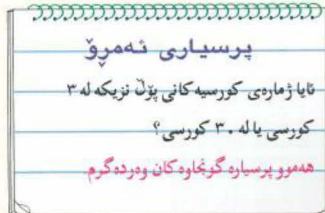 پرسیاری ئەمڕۆ
ئایا ژمارەی کورسیەکانی پۆل نزیکە لە ٣
کورسی یا لە ٣٠ کورسی؟
هەموو پرسیارە گونجاوەکان وەردەگرم.